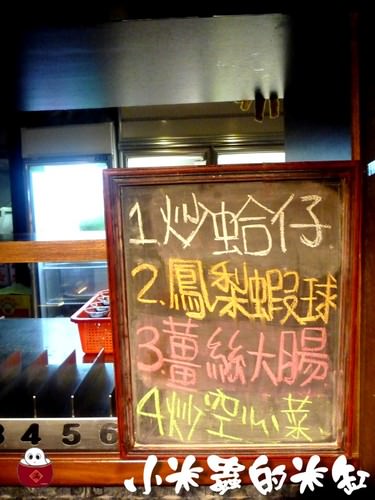 1.炒蛤仔
2.鳳梨蝦球
3.薑絲大腸
4.炒空心菜
3 4 5 6
小米蟲的米缸